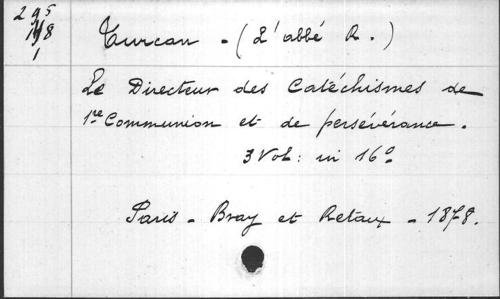 295
Turcan - (L'abbé R.)
1
Le Directeur des Catéchismes de
1re Communion et de persévérance.
3 Vol: in 16°
Paris - Bray et Retaux - 1878.